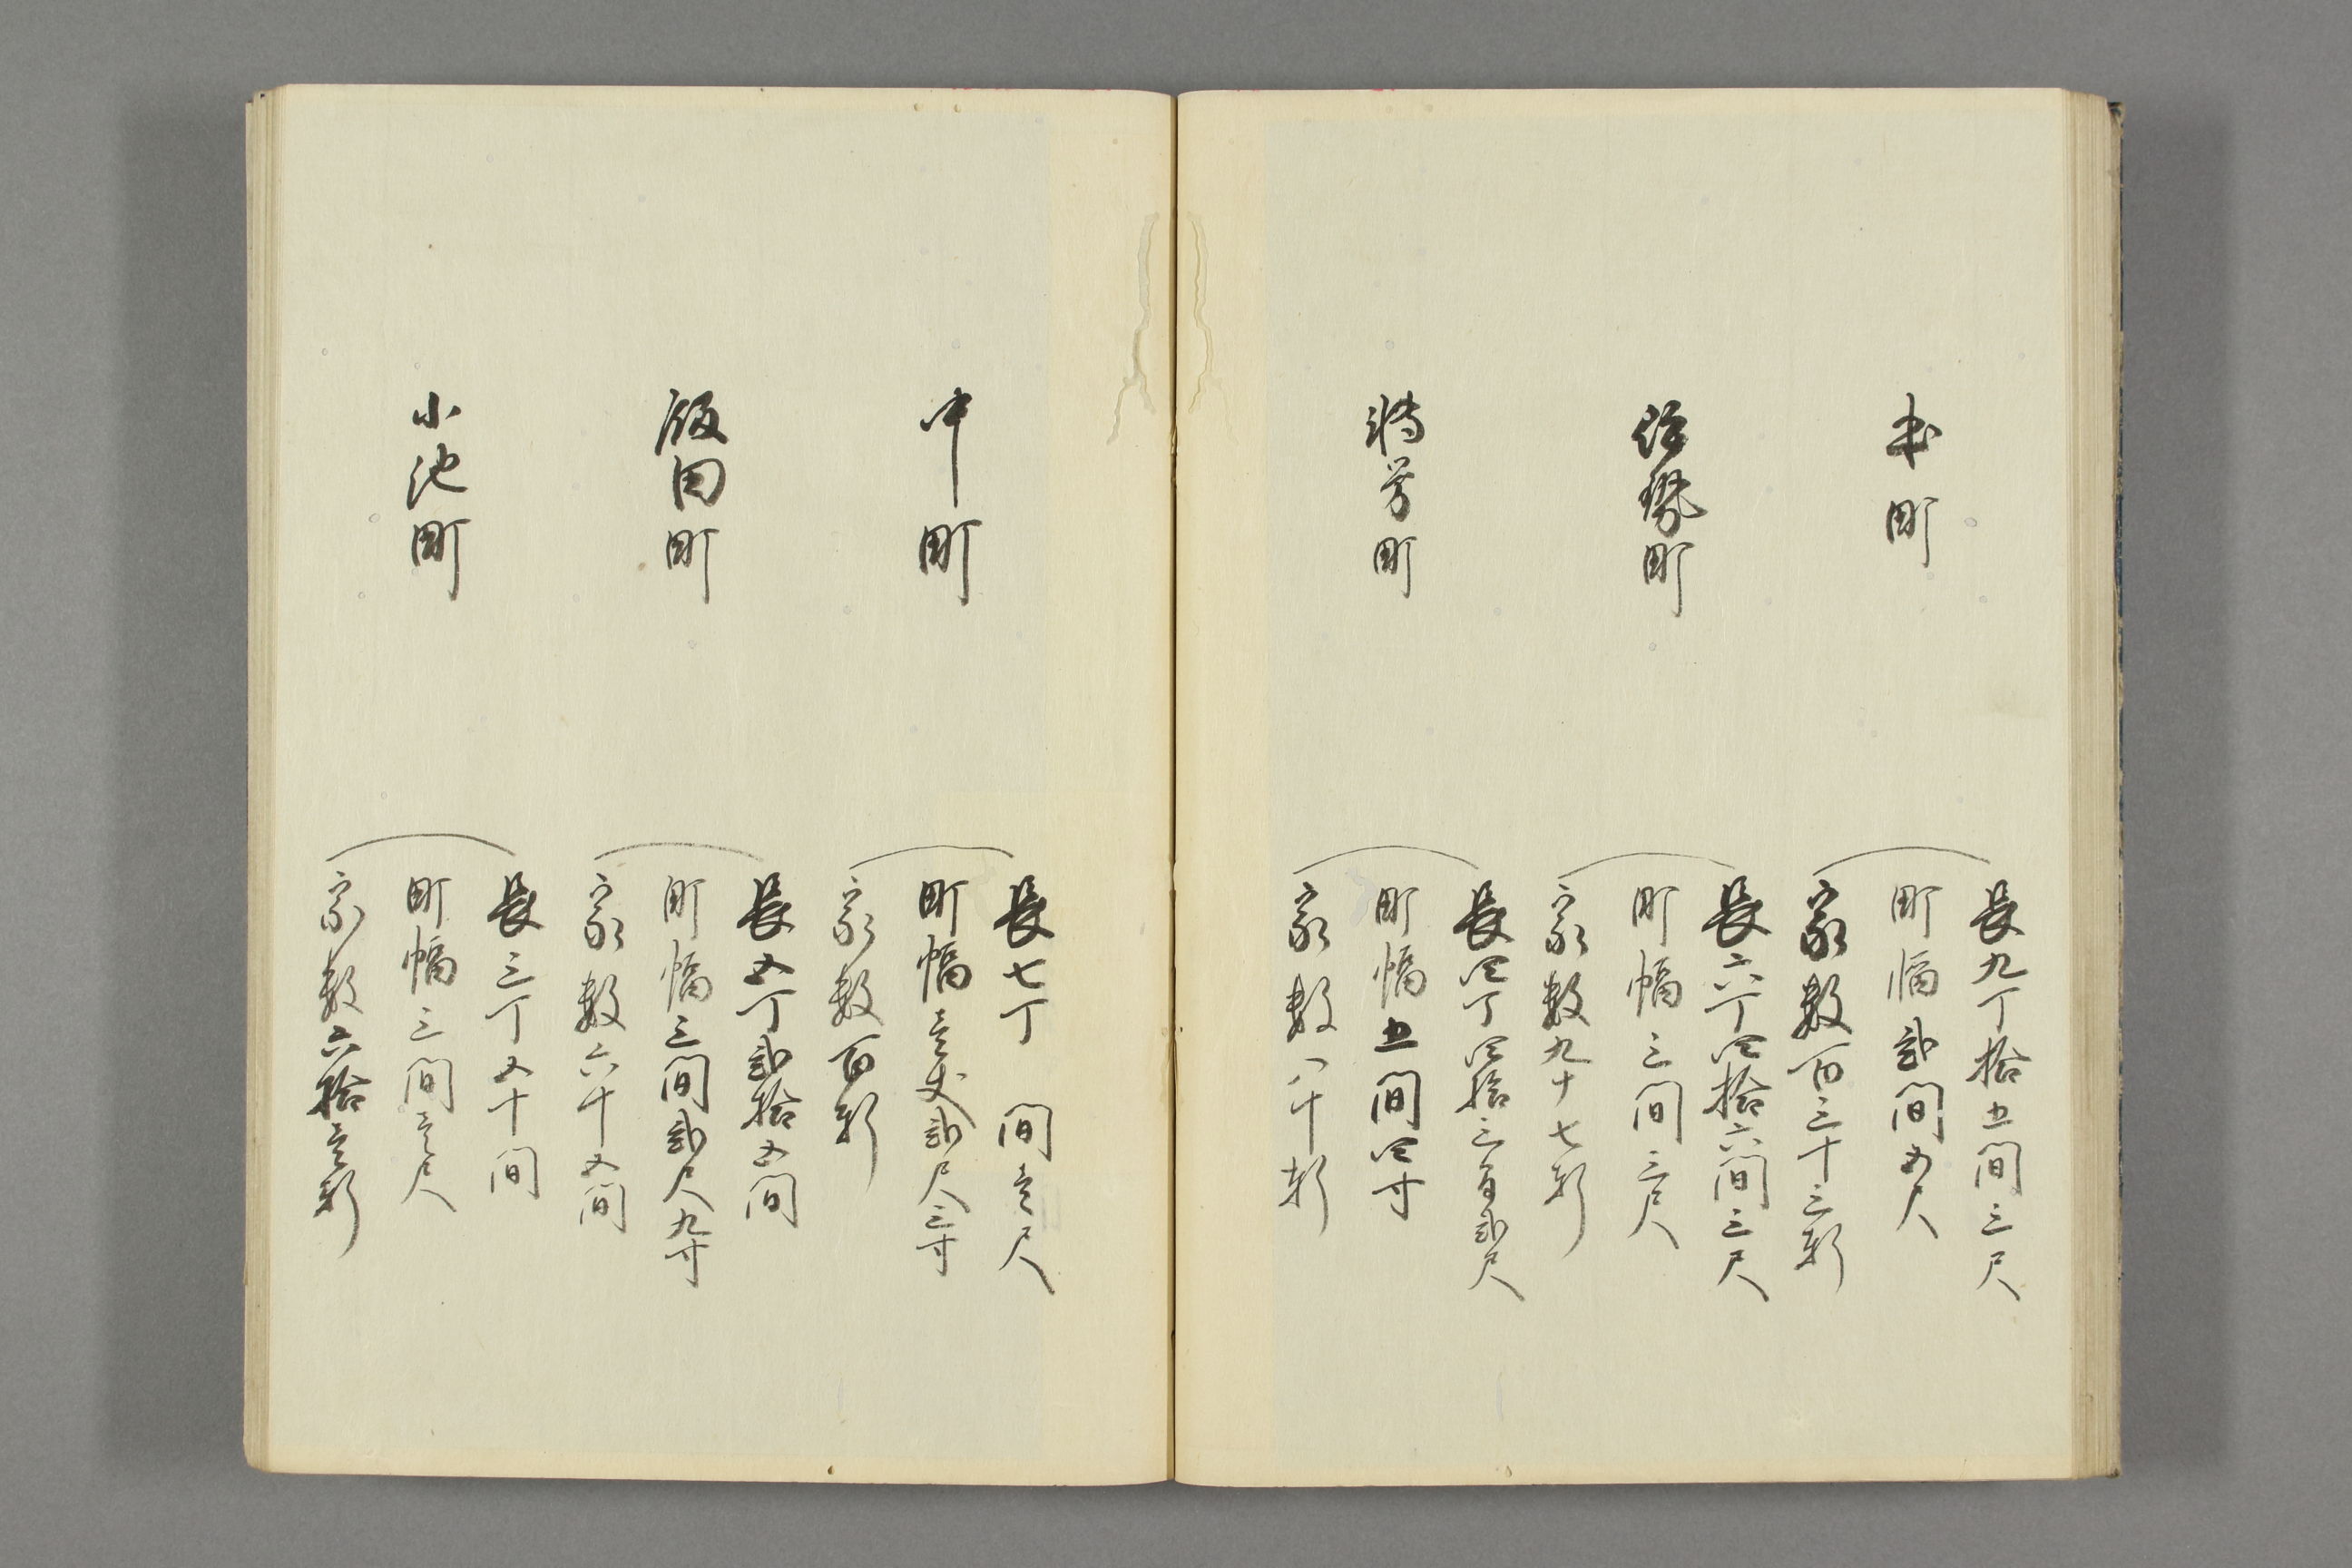 本町
長九丁拾五間三尺
町幅弐間五尺
家数百三十三軒
伊勢町
長六丁四拾六間三尺
町幅三間三尺
家数九十七軒
博労町
長四丁四拾三間弐尺
町幅五間四寸
家数八十軒
中町
長七丁　間壱尺
町幅壱丈弐尺三寸
家数百軒
飯田町
長五丁弐拾五間
町幅三間弐尺九寸
家数六十五間
小池町
長三丁五十間
町幅三間壱尺
家数六拾壱軒